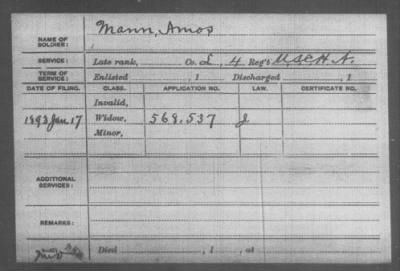 NAME OF SOLDIER: Mann, Amos
SERVICE: Late rank, Co. L, 4 Reg't U.S.C.H.A.
TERM OF SERVICE: Enlisted , 1 Discharged , 1
DATE OF FILING. CLASS. APPLICATION NO. LAW. CERTIFICATE NO.
Invalid,
1893 Jan 17 Widow, 568.537 J.
Minor,
ADDITIONAL SERVICES:
REMARKS:
Died , 1 , at